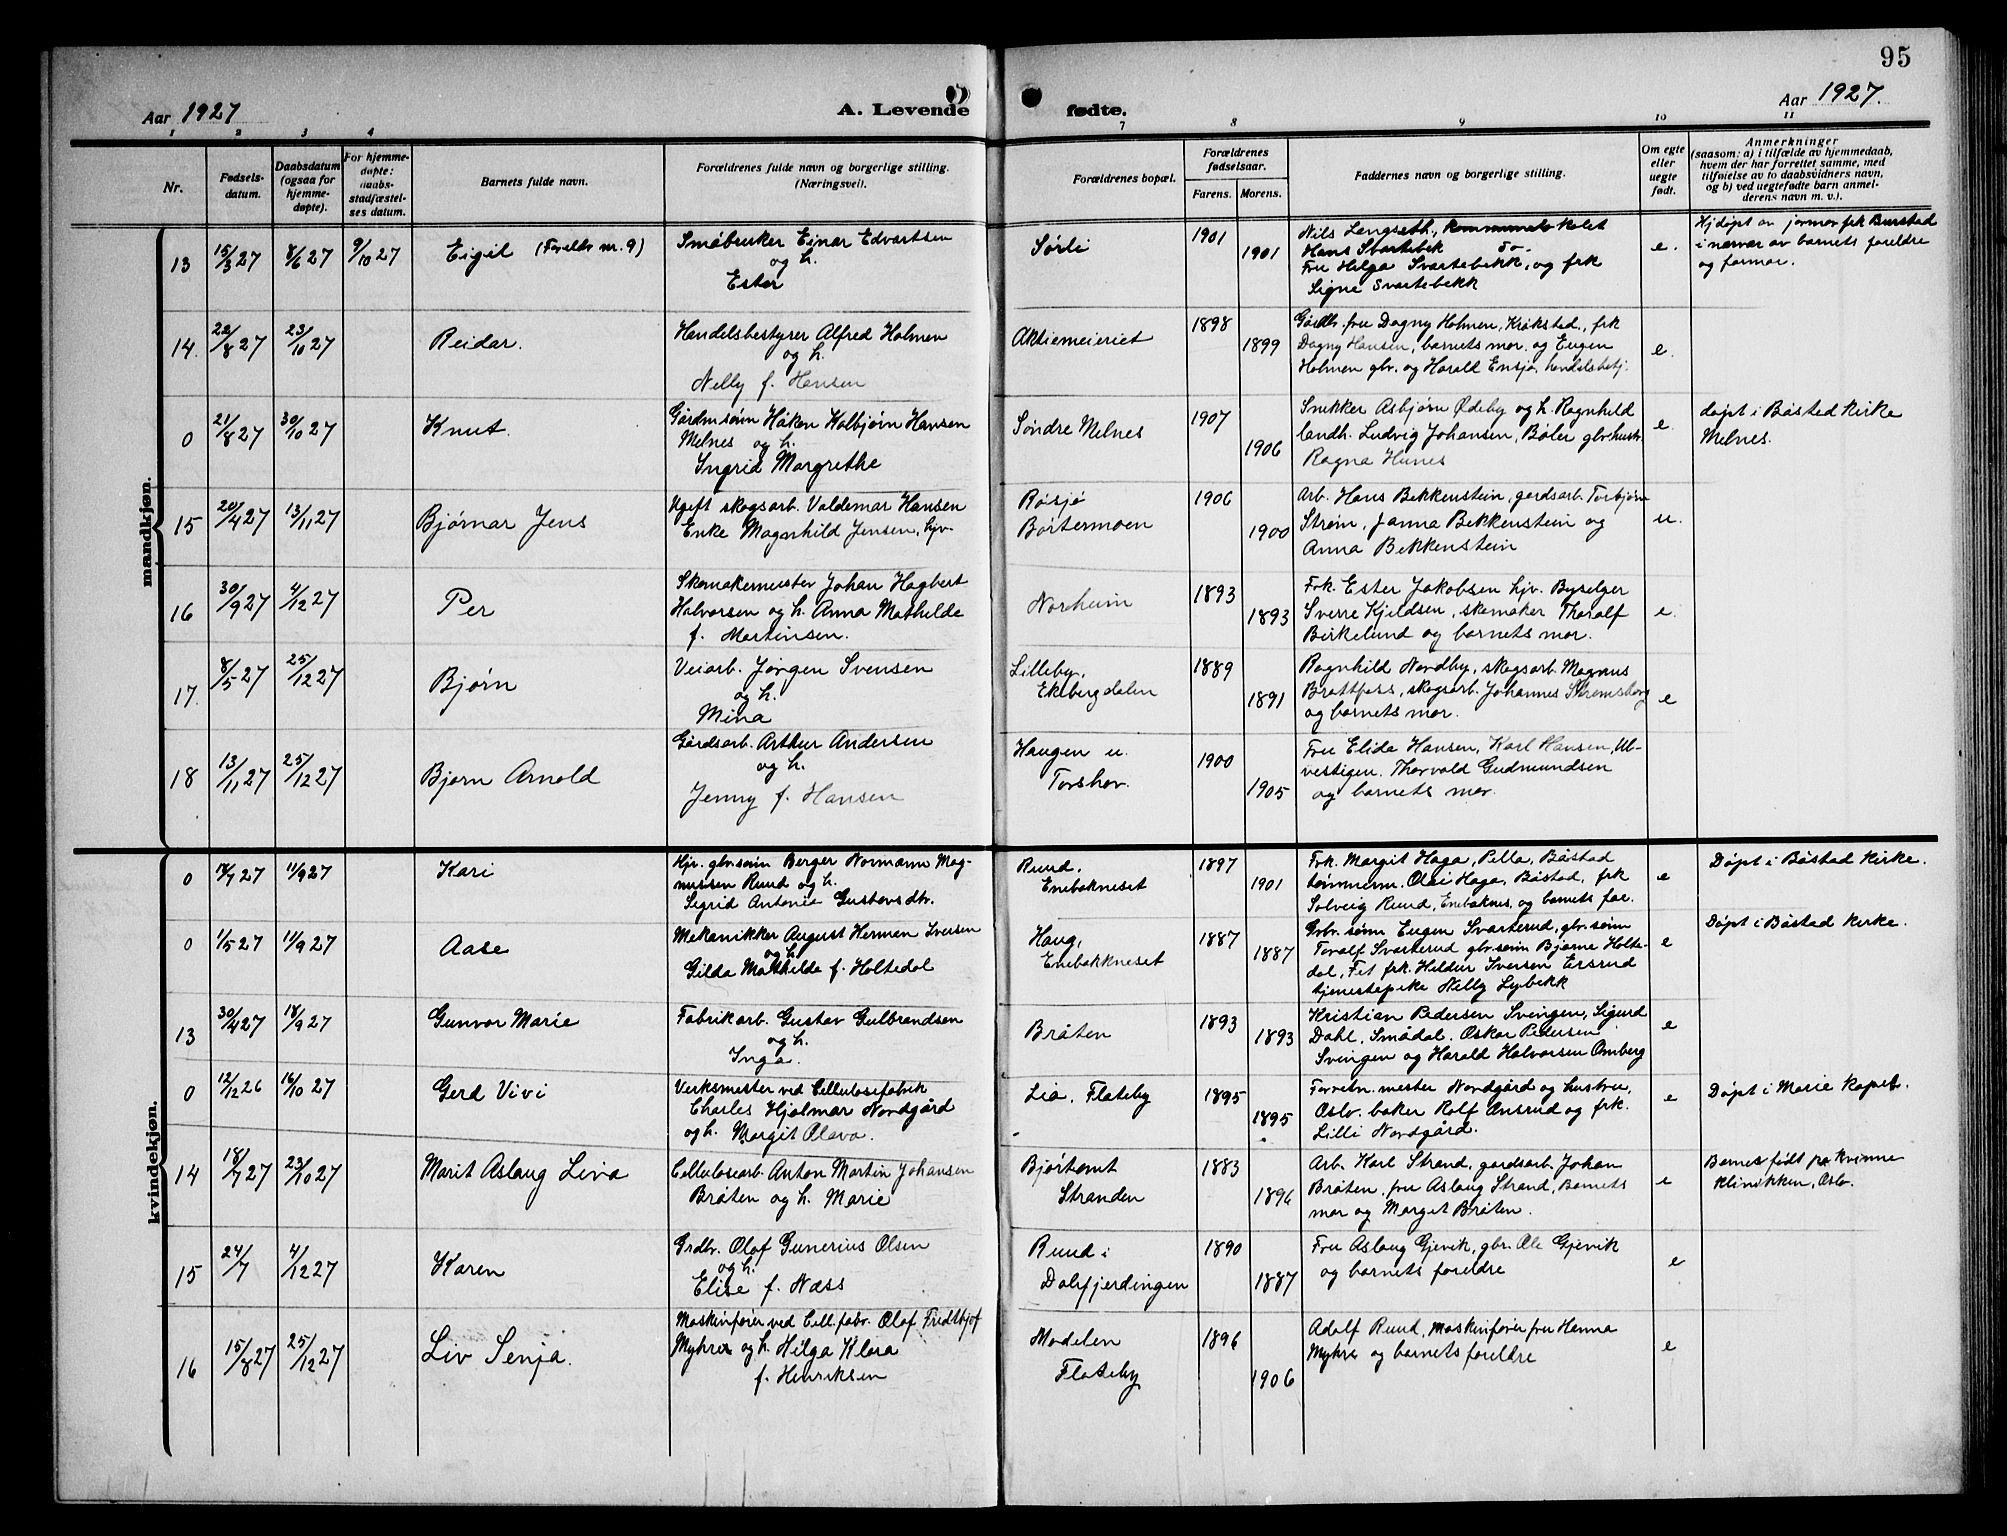 95
Aar 1927
A. Levende
fødte.
Aar 1927.
1 2 3 4 7 8 9 10 11
Nr.
Fødsels-
datum.
Daabsdatum
(ogsaa for
hjemme-
døpte).
For hjemme-
døpte:
daabs-
stadfæstel-
ses datum.
Barnets fulde navn.
Forældrenes fulde navn og borgerlige stilling.
(Næringsvei).
Forældrenes bopæl.
Forældrenes
fødselsaar.
Farens. Morens.
Faddernes navn og borgerlige stilling.
Om egte
eller
uegte
født.
Anmerkninger
(saasom: a) i tilfælde av hjemmedaab,
hvem der har forrettet samme, med
tilføielse av to daabsvidners navn,
og b) ved uegtefødte barn anmel-
derens navn m. v.).
mandkjøn.
13 15/3 27 8/6 27 9/10 27 Eigil
Småbruker Einar Edvartsen
og h.
Ester
Sørli
1901 1901
Nils Langseth,
Hans Svartebek
Fru Helga Svartebekk, og frk
Signe Svartebekk
e.
Hjdøpt av jormor frk Burstad
i nærvær av barnets foreldre
og farmor.
14. 22/8 27 23/10 27 Reidar.
Handelsbestyrer Alfred Holmen
og h.
Nelly f. Hansen
Aktiemeieriet
1898 1899
Gårdbr. fru Dagny Holmen, Kråkstad, frk
Dagny Hansen, barnets mor og Eugen
Holmen gbr. og Harald Ensjø, handelsbetj.
e.
0 21/8 27 30/10 27 Knut.
Gårdmsønn Håken Kolbjørn Hansen
Melnes og h.
Ingrid Margrethe
Søndre Melnes
1907 1906
Snekker Asbjørn Ødeby og h. Ragnhild
landh. Ludvig Johansen, Bøler gbr.hustr.
Ragna
e.
døpt i Båstad Kirke
Melnes.
15 20/4 27 13/11 27 Bjørnar Jens
Ugift skogsarb. Valdemar Hansen
Enke Magnhild Jensen, hjv.
Røsjø
Børtermoen
1906 1900
Arb. Hans Bekkenstein, gardsarb. Torbjørn
Strøm, Janna Bekkenstein og
Anna Bekkenstein
u.
16 30/9 27 4/12 27 Per
Skomakermester Johan Hagbert
Halvorsen og h. Anna Mathilde
f. Martinsen.
Norheim
1893 1893
Frk. Ester Jakobsen hjv. Byselger
Sverre Kjeldsen, skomaker Thoralf
Birkelund og barnets mor.
e.
17. 8/5 27 25/12 27 Bjørn
Veiarb. Jørgen Svensen
og h.
Mina
Lilleby,
Ekebergdalen
1889 1891
Ragnhild Nordby, skogsarb. Magnus
Brattfoss, skogsarb. Johannes Strømsborg
og barnets mor.
e
18 13/11 27 25/12 27 Bjørn Arnold
Gårdsarb. Arthur Andersen
og h.
Jenny f. Hansen
Haugen u.
Torshov.
1900 1905
Fru Elida Hansen, Karl Hansen, Ul-
vestigen. Thorvald Gudmundsen
og barnets mor.
kvindekjøn.
0 11/9 27 Kari
Hjv. gbr.sønn Berger Normann Mag-
nussen Ruud og h.
Sigrid Antonie Gustavsdtr.
Ruud,
Enebakneset
1897 1901
Frk. Margit Haga, Pella, Båstad
tømmerm. Olai Haga, Båstad, frk
Solveig Ruud, Enebaknes, og barnets far.
e
Døpt i Båstad Kirke.
0 1/5 27 11/9 27 Aase
Mekanikker August Herman Iversen
og h.
Gilda Mathilde f. Holtedal
Haug,
Enebakkneset
1887 1887
Grbr. sønn Eugen Svarterud, gbr.sønn
Torolf Svarterud gbr.sønn Bjarne Holte-
dal, Fet frk. Hildur Iversen Ersrud
tjenestepike Nelly Lybekk
e
Døpt i Båstad Kirke.
13 30/4 27 18/9 27 Gunvor Marie
Fabrikarb. Gustav Gulbrandsen
og h.
Inga.
Bråten
1893 1893
Kristian Pedersen Svingen, Sigurd
Dahl, Smådal. Oskar Pedersen
Svingen og Harald Halvorsen Omberg
e
0 12/12 26 16/10 27 Gerd Vivi
Verksmester ved Cellulosefabrik
Charles Hjalmar Nordgård
og h. Margit Olava.
Lia, Flateby
1895 1895
Forretn. mester Nordgård og hustru,
Oslo. baker Rolf Ansrud og frk.
Lilli Nordgård.
e
Døpt i Marie Kapel.
14 18/7 27 23/10 27 Marit Aslaug Liva
Cellulosearb. Anton Martin Johansen
Bråten og h. Marie
Bjørtomt
Stranden
1883 1896
Arb. Karl Strand, gardsarb. Johan
Bråten, fru Aslaug Strand, Barnets
mor og Marget Bråten.
e
Barnet født på Kvinne
klinikken, Oslo.
15 24/7 4/12 27 Karen
Grdbr. Olaf Gunerius Olsen
og h.
Elise f. Næss
Ruud i
Dalefjerdingen
1890 1887
Fru Aslaug Gjevik, gbr. Ole Gjevik
og barnets foreldre
e
16 15/8 27 25/12 27 Liv Senja.
Maskinfører ved Cell.fabr. Olaf Fridthjof
Myhre og h. Helga Klara
f. Henriksen
Modalen
Flateby
1896 1906
Adolf Ruud, Maskinfører fru Henna
Myhre og barnets foreldre
e